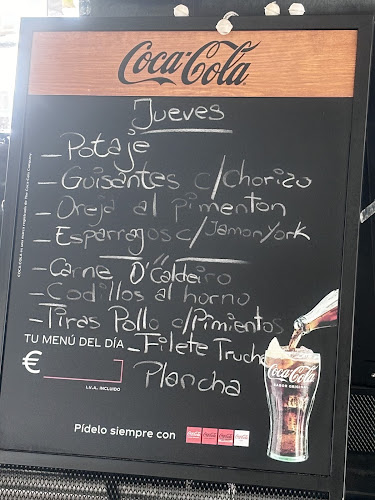 Coca-Cola
Jueves
- Potaje
- Guisantes c/Chorizo
- Oreja al pimenton
- Esparragos c/Jamon York
- Carne D'Caldeiro
- Codillos al horno
- Tiras Pollo c/Pimientos
TU MENÚ DEL DÍA
- Filete Trucha
Plancha
€
I.V.A. INCLUIDO
Coca-Cola
SABOR ORIGINAL
Pídelo siempre con